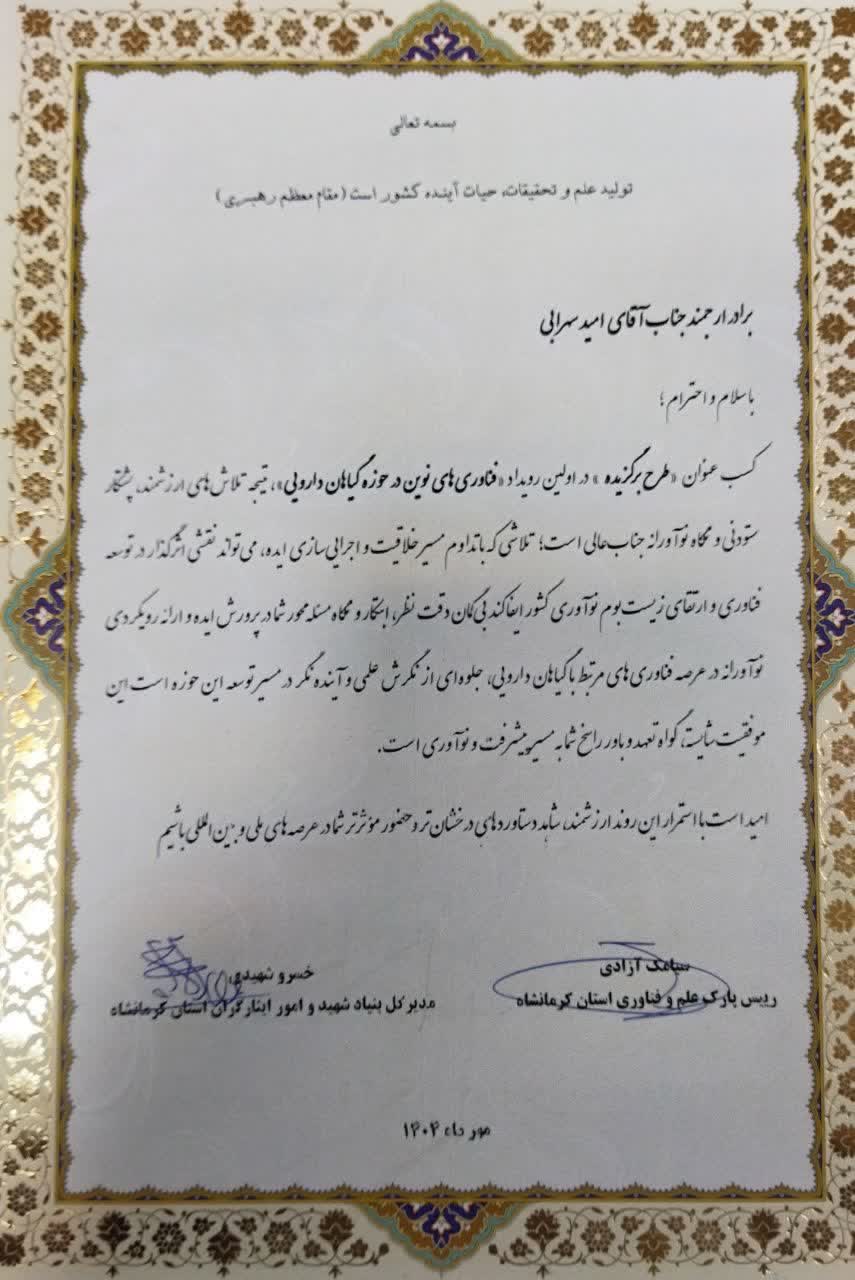 بسمه تعالی
تولید علم و تحقیقات، حیات آینده کشور است (مقام معظم رهبری)
برادر ارجمند جناب آقای امید سهرابی
با سلام و احترام؛
کسب عنوان «طرح برگزیده» در اولین رویداد «فناوری های نوین در حوزه گیاهان دارویی»، نتیجه تلاش های ارزشمند، پشتکار
ستودنی و نگاه نوآورانه جناب عالی است؛ تلاشی که با تداوم مسیر خلاقیت و اجرایی سازی ایده، می تواند نقشی اثرگذار در توسعه
فناوری و ارتقای زیست بوم نوآوری کشور ایفا کند بی گمان دقت نظر، ابتکار و نگاه مسئله محور شما در پرورش ایده و ارائه رویکردی
نوآورانه در عرصه فناوری های مرتبط با گیاهان دارویی، جلوه ای از نگرش علمی و آینده نگر در مسیر توسعه این حوزه است این
موفقیت شایسته، گواه تعهد و باور راسخ شما به مسیر پیشرفت و نوآوری است.
امید است با استمرار این روند ارزشمند، شاهد دستاوردهای درخشان تر و حضور مؤثرتر شما در عرصه های ملی و بین المللی باشیم
سیامک آزادی
رییس پارک علم و فناوری استان کرمانشاه
خسرو شهیدی
مدیر کل بنیاد شهید و امور ایثارگران استان کرمانشاه
مورداد ۱۴۰۴